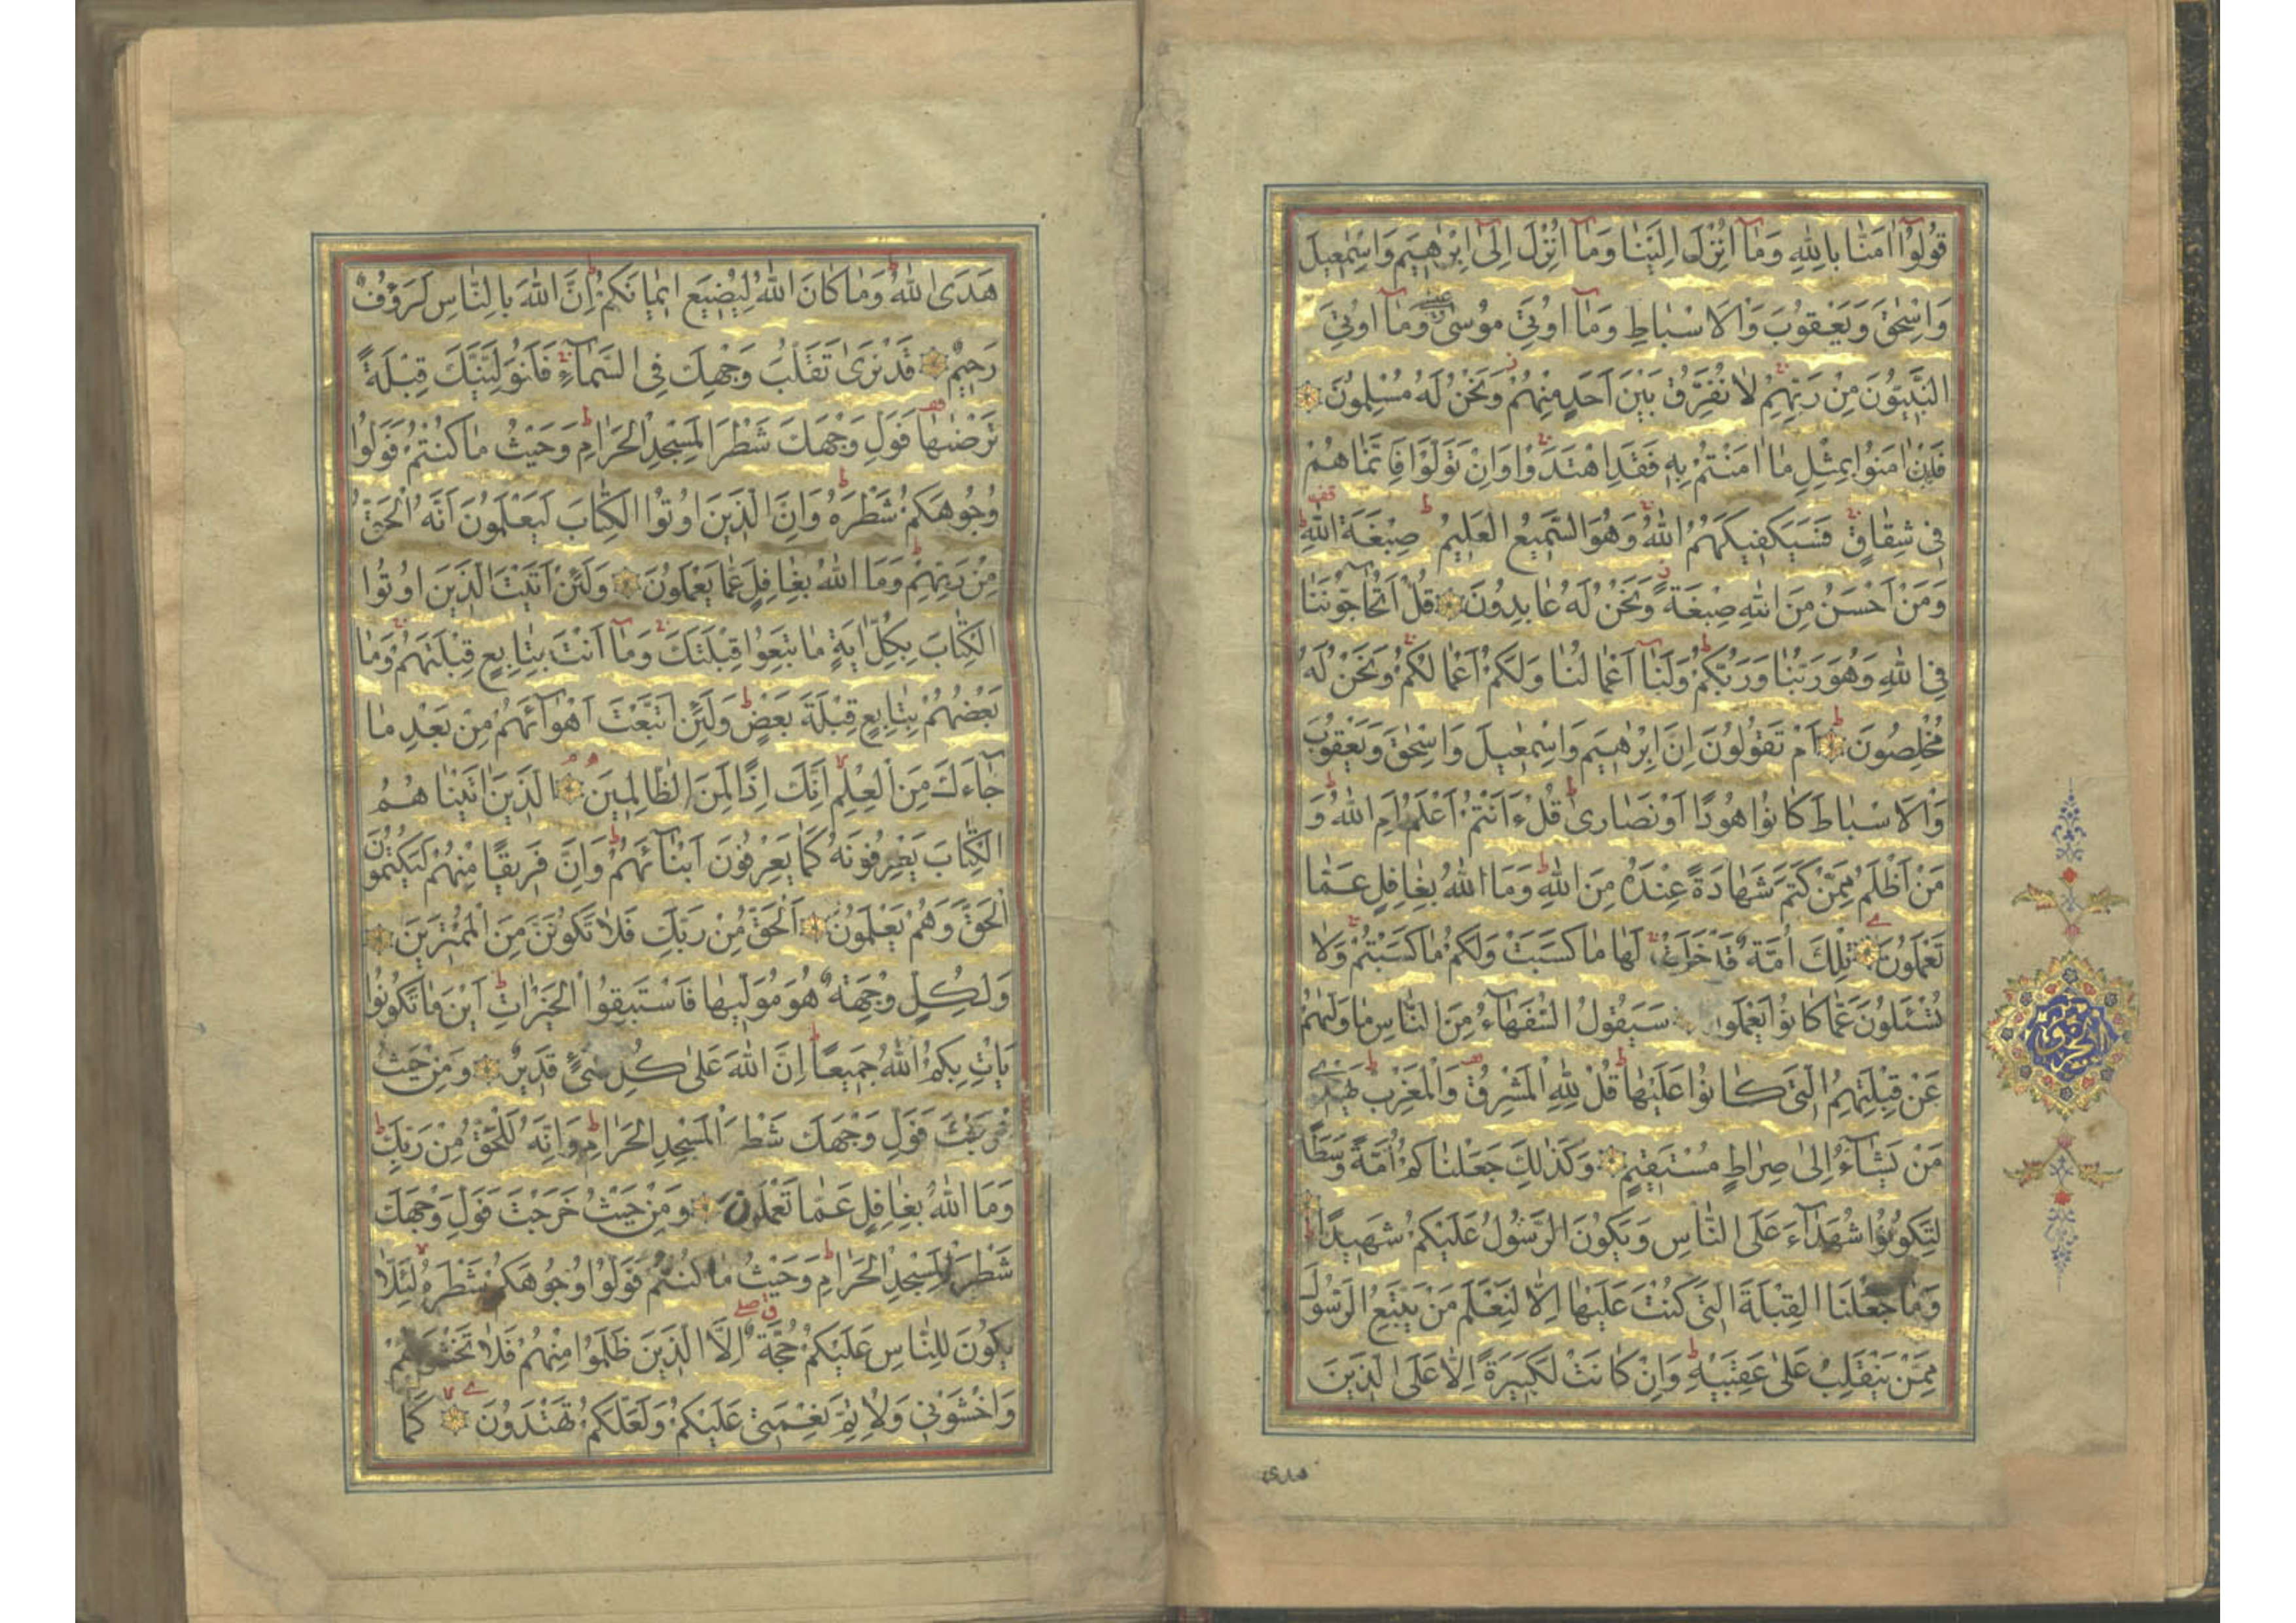 قُولُوا اٰمَنَّا بِاللّٰهِ وَمَآ اُنْزِلَ اِلَيْنَا وَمَآ اُنْزِلَ اِلٰٓى اِبْرٰهِيمَ وَاِسْمٰعِيلَ
وَاِسْحٰقَ وَيَعْقُوبَ وَالْاَسْبَاطِ وَمَآ اُوتِيَ مُوسٰى وَعِيسٰى وَمَآ اُوتِيَ
النَّبِيُّونَ مِنْ رَبِّهِمْ لَا نُفَرِّقُ بَيْنَ اَحَدٍ مِنْهُمْ وَنَحْنُ لَهُ مُسْلِمُونَ
فَاِنْ اٰمَنُوا بِمِثْلِ مَا اٰمَنْتُمْ بِهِ فَقَدِ اهْتَدَوْا وَاِنْ تَوَلَّوْا فَاِنَّمَا هُمْ
فِي شِقَاقٍ فَسَيَكْفِيكَهُمُ اللّٰهُ وَهُوَ السَّمِيعُ الْعَلِيمُ صِبْغَةَ اللّٰهِ
وَمَنْ اَحْسَنُ مِنَ اللّٰهِ صِبْغَةً وَنَحْنُ لَهُ عَابِدُونَ قُلْ اَتُحَآجُّونَنَا
فِي اللّٰهِ وَهُوَ رَبُّنَا وَرَبُّكُمْ وَلَنَآ اَعْمَالُنَا وَلَكُمْ اَعْمَالُكُمْ وَنَحْنُ لَهُ
مُخْلِصُونَ اَمْ تَقُولُونَ اِنَّ اِبْرٰهِيمَ وَاِسْمٰعِيلَ وَاِسْحٰقَ وَيَعْقُوبَ
وَالْاَسْبَاطَ كَانُوا هُودًا اَوْ نَصَارٰى قُلْ ءَاَنْتُمْ اَعْلَمُ اَمِ اللّٰهُ وَ
مَنْ اَظْلَمُ مِمَّنْ كَتَمَ شَهَادَةً عِنْدَهُ مِنَ اللّٰهِ وَمَا اللّٰهُ بِغَافِلٍ عَمَّا
تَعْمَلُونَ تِلْكَ اُمَّةٌ قَدْ خَلَتْ لَهَا مَا كَسَبَتْ وَلَكُمْ مَا كَسَبْتُمْ وَلَا
تُسْئَلُونَ عَمَّا كَانُوا يَعْمَلُونَ سَيَقُولُ السُّفَهَآءُ مِنَ النَّاسِ مَا وَلّٰيهُمْ
عَنْ قِبْلَتِهِمُ الَّتِي كَانُوا عَلَيْهَا قُلْ لِلّٰهِ الْمَشْرِقُ وَالْمَغْرِبُ يَهْدِي
مَنْ يَشَآءُ اِلٰى صِرَاطٍ مُسْتَقِيمٍ وَكَذٰلِكَ جَعَلْنَاكُمْ اُمَّةً وَسَطًا
لِتَكُونُوا شُهَدَآءَ عَلَى النَّاسِ وَيَكُونَ الرَّسُولُ عَلَيْكُمْ شَهِيدًا
وَمَا جَعَلْنَا الْقِبْلَةَ الَّتِي كُنْتَ عَلَيْهَا اِلَّا لِنَعْلَمَ مَنْ يَتَّبِعُ الرَّسُولَ
مِمَّنْ يَنْقَلِبُ عَلٰى عَقِبَيْهِ وَاِنْ كَانَتْ لَكَبِيرَةً اِلَّا عَلَى الَّذِينَ
هدى
هَدَى اللّٰهُ وَمَا كَانَ اللّٰهُ لِيُضِيعَ اِيمَانَكُمْ اِنَّ اللّٰهَ بِالنَّاسِ لَرَؤُفٌ
رَحِيمٌ قَدْ نَرٰى تَقَلُّبَ وَجْهِكَ فِي السَّمَآءِ فَلَنُوَلِّيَنَّكَ قِبْلَةً
تَرْضٰيهَا فَوَلِّ وَجْهَكَ شَطْرَ الْمَسْجِدِ الْحَرَامِ وَحَيْثُ مَا كُنْتُمْ فَوَلُّوا
وُجُوهَكُمْ شَطْرَهُ وَاِنَّ الَّذِينَ اُوتُوا الْكِتَابَ لَيَعْلَمُونَ اَنَّهُ الْحَقُّ
مِنْ رَبِّهِمْ وَمَا اللّٰهُ بِغَافِلٍ عَمَّا يَعْمَلُونَ وَلَئِنْ اَتَيْتَ الَّذِينَ اُوتُوا
الْكِتَابَ بِكُلِّ اٰيَةٍ مَا تَبِعُوا قِبْلَتَكَ وَمَآ اَنْتَ بِتَابِعٍ قِبْلَتَهُمْ وَمَا
بَعْضُهُمْ بِتَابِعٍ قِبْلَةَ بَعْضٍ وَلَئِنِ اتَّبَعْتَ اَهْوَآئَهُمْ مِنْ بَعْدِ مَا
جَآءَكَ مِنَ الْعِلْمِ اِنَّكَ اِذًا لَمِنَ الظَّالِمِينَ الَّذِينَ اٰتَيْنَاهُمُ
الْكِتَابَ يَعْرِفُونَهُ كَمَا يَعْرِفُونَ اَبْنَآئَهُمْ وَاِنَّ فَرِيقًا مِنْهُمْ لَيَكْتُمُونَ
الْحَقَّ وَهُمْ يَعْلَمُونَ اَلْحَقُّ مِنْ رَبِّكَ فَلَا تَكُونَنَّ مِنَ الْمُمْتَرِينَ
وَلِكُلٍّ وِجْهَةٌ هُوَ مُوَلِّيهَا فَاسْتَبِقُوا الْخَيْرَاتِ اَيْنَ مَا تَكُونُوا
يَاْتِ بِكُمُ اللّٰهُ جَمِيعًا اِنَّ اللّٰهَ عَلٰى كُلِّ شَيْءٍ قَدِيرٌ وَمِنْ حَيْثُ
خَرَجْتَ فَوَلِّ وَجْهَكَ شَطْرَ الْمَسْجِدِ الْحَرَامِ وَاِنَّهُ لَلْحَقُّ مِنْ رَبِّكَ
وَمَا اللّٰهُ بِغَافِلٍ عَمَّا تَعْمَلُونَ وَمِنْ حَيْثُ خَرَجْتَ فَوَلِّ وَجْهَكَ
شَطْرَ الْمَسْجِدِ الْحَرَامِ وَحَيْثُ مَا كُنْتُمْ فَوَلُّوا وُجُوهَكُمْ شَطْرَهُ لِئَلَّا
يَكُونَ لِلنَّاسِ عَلَيْكُمْ حُجَّةٌ اِلَّا الَّذِينَ ظَلَمُوا مِنْهُمْ فَلَا تَخْشَوْهُمْ
وَاخْشَوْنِي وَلِاُتِمَّ نِعْمَتِي عَلَيْكُمْ وَلَعَلَّكُمْ تَهْتَدُونَ كَمَا